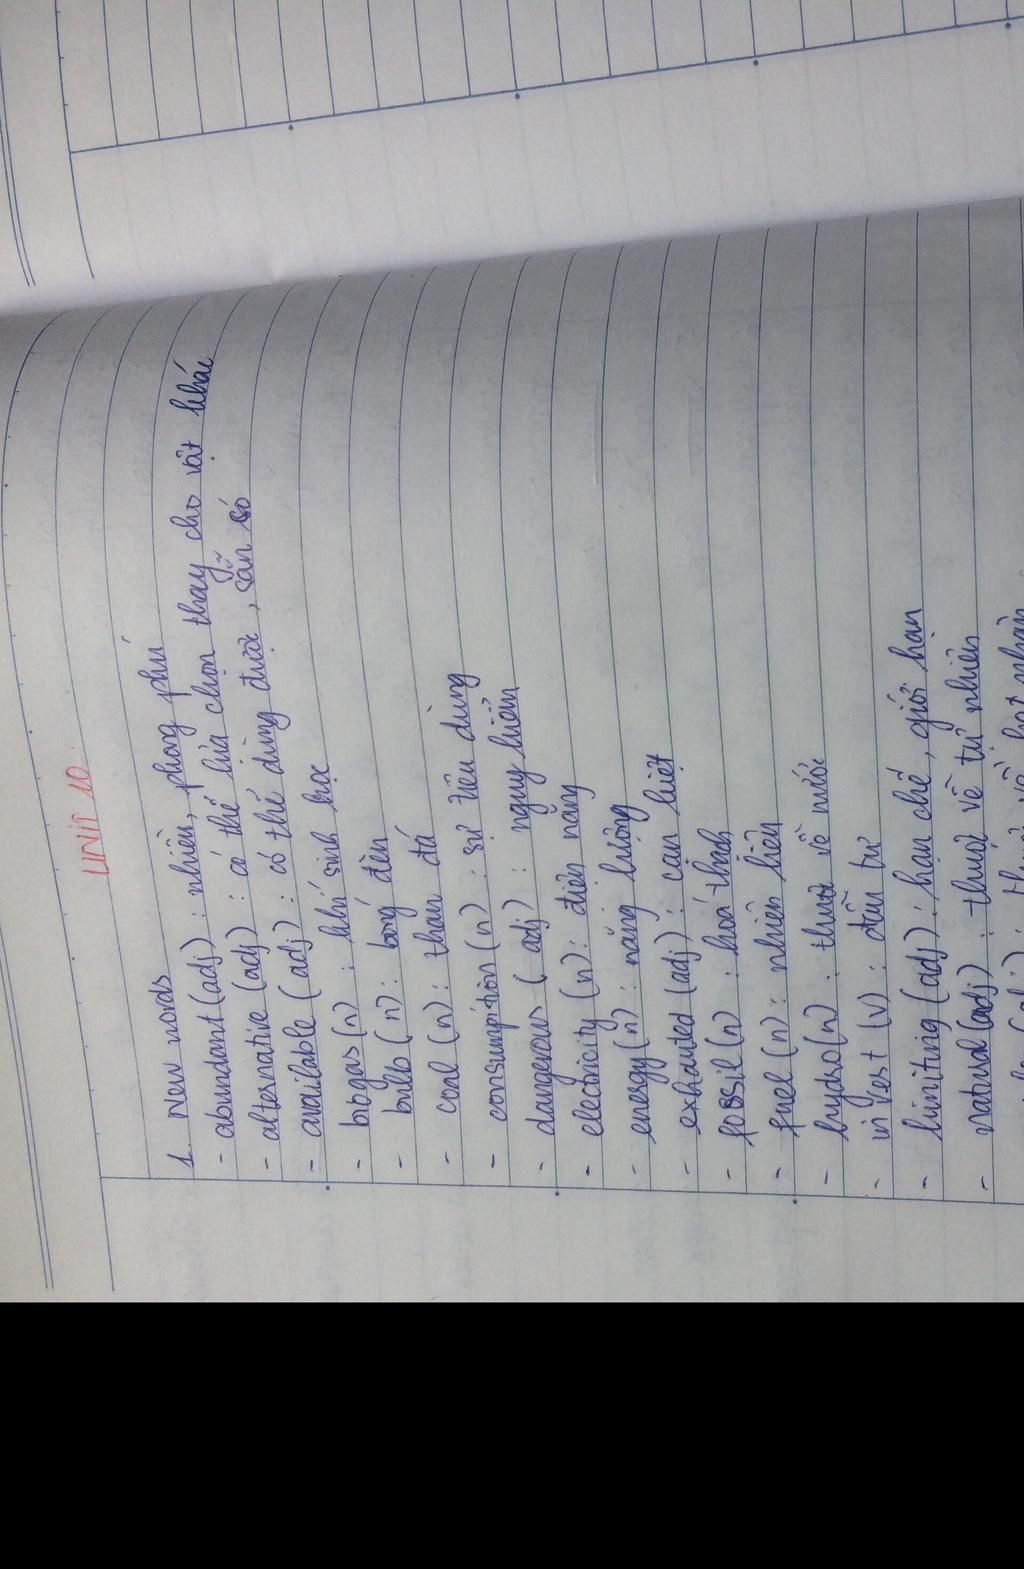 UNIT 10
1. New words
- abundant (adj) : nhiều, phong phú
- alternative (adj) : có thể lựa chọn thay cho vật khác
- available (adj) : có thể dùng được, sẵn có
- biogas (n) : khí sinh học
- bulb (n) : bóng đèn
- coal (n) : than đá
- consumption (n) : sự tiêu dùng
- dangerous (adj) : nguy hiểm
- electricity (n) : điện năng
- energy (n) : năng lượng
- exhauted (adj) : cạn kiệt
- fossil (n) : hoá thạch
- fuel (n) : nhiên liệu
- hydro (n) : thuộc về nước
- invest (v) : đầu tư
- limiting (adj) : hạn chế, giới hạn
- natural (adj) : thuộc về tự nhiên
(adj) : thuộc về hạt nhân